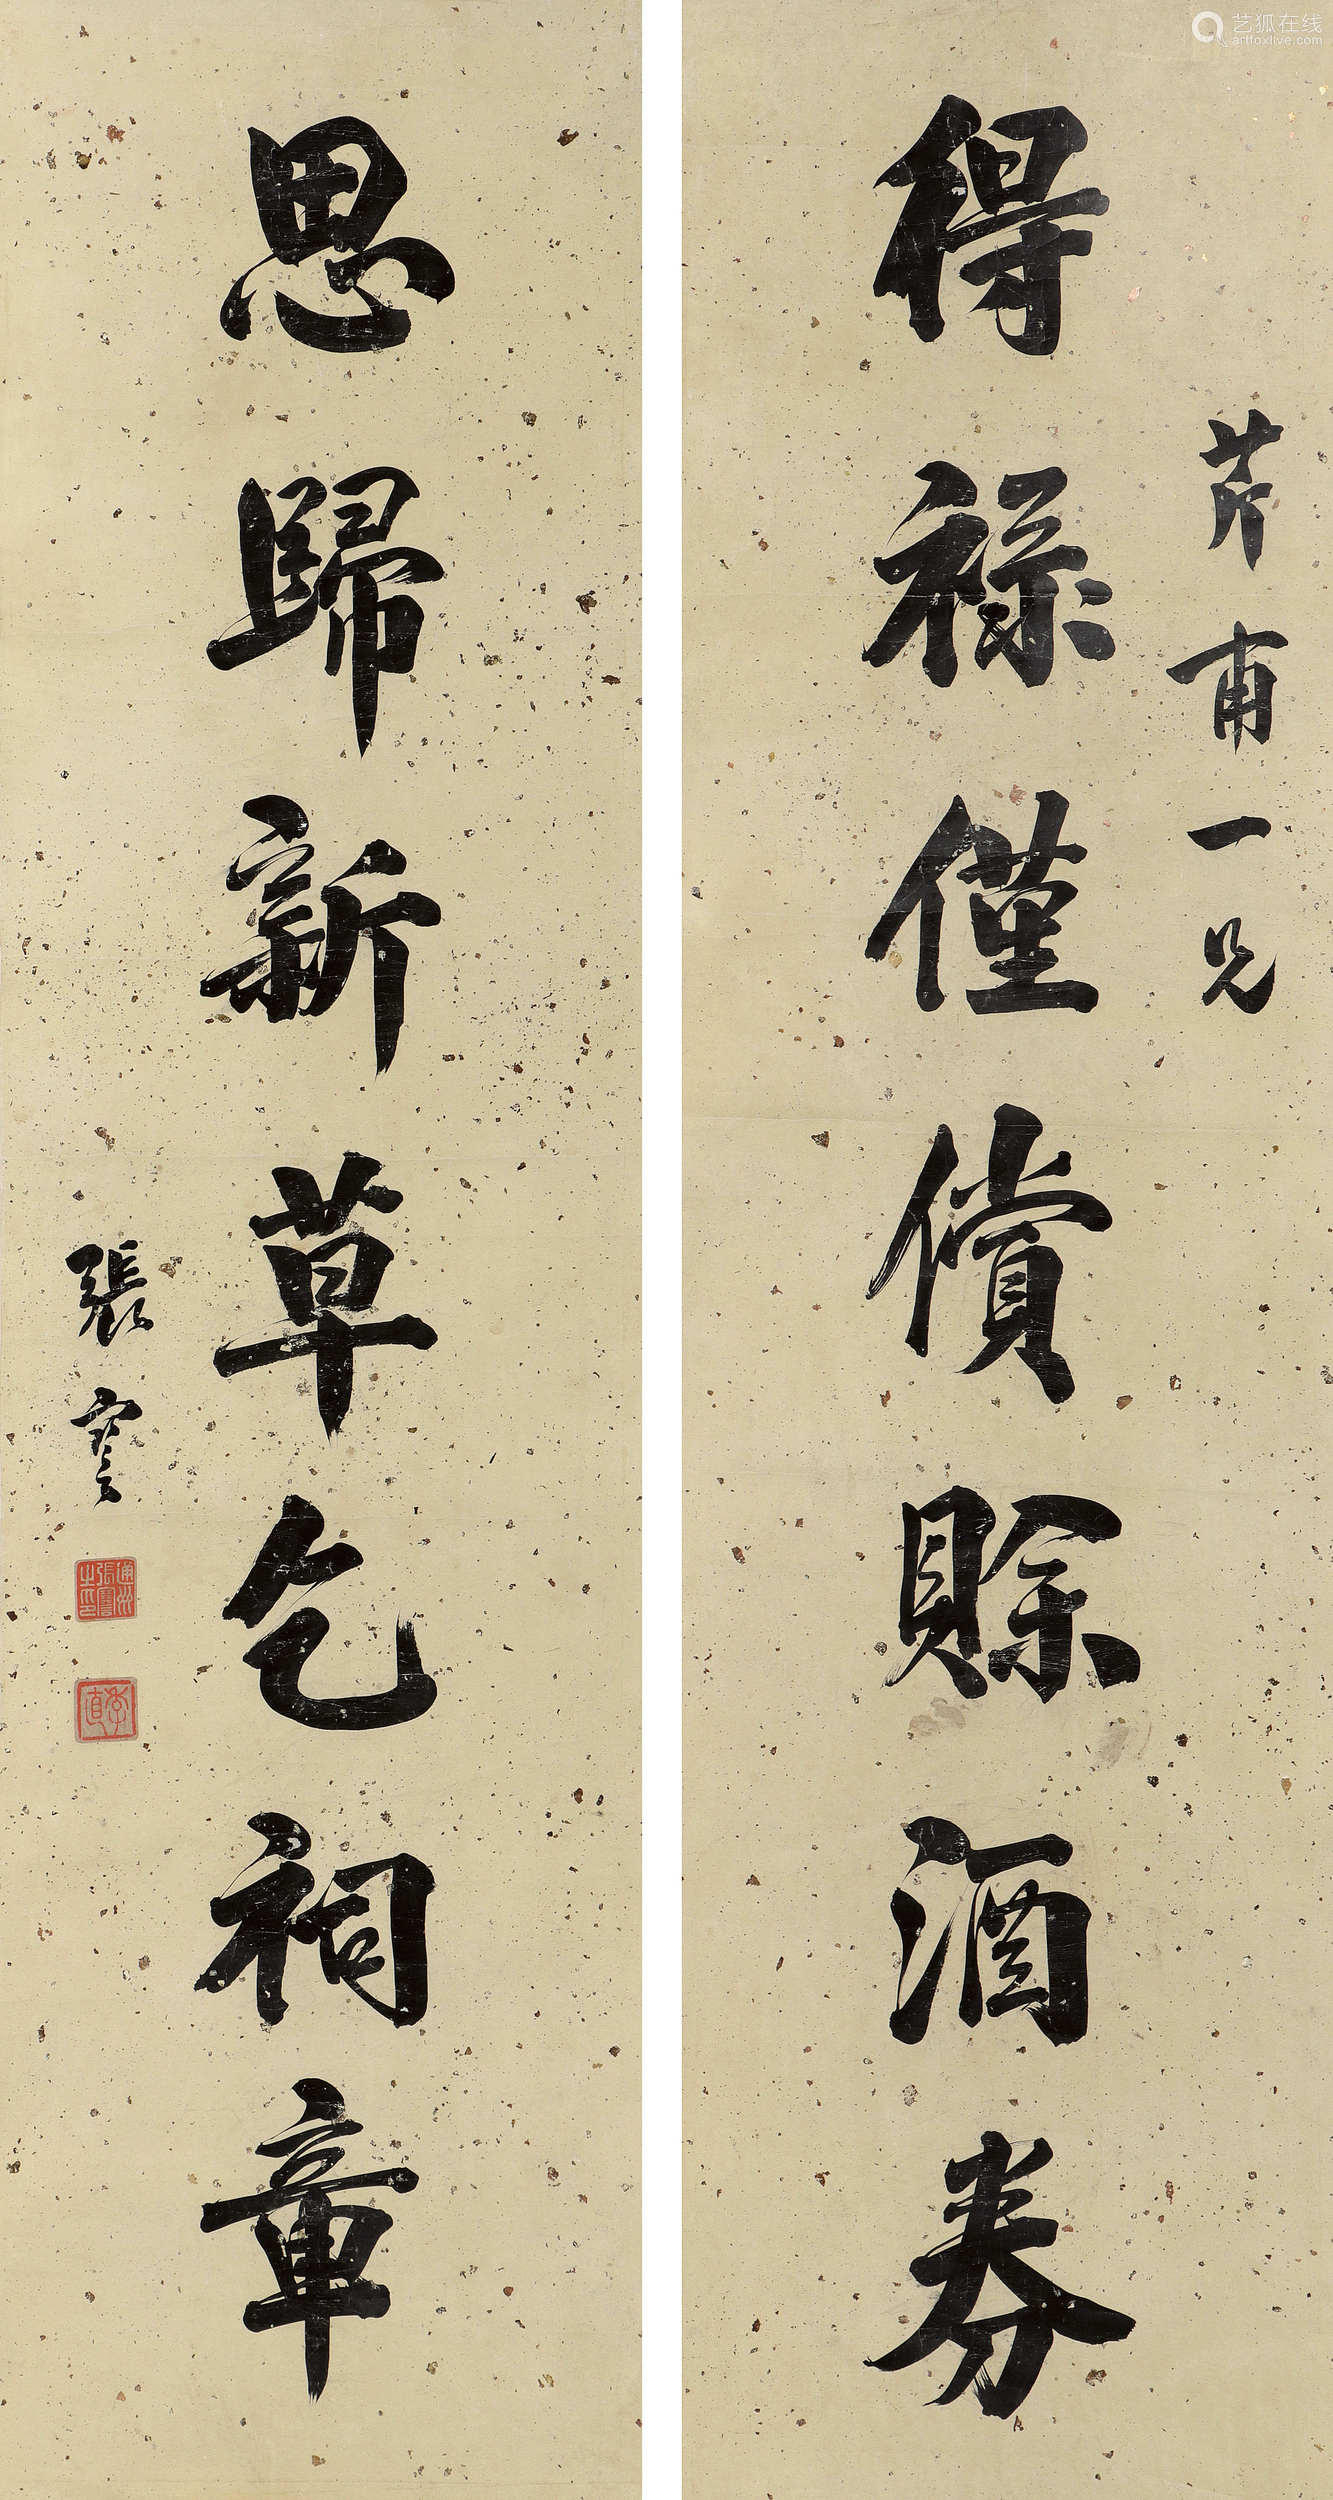 得禄僅償賒酒券
芹甫一兄
思歸新草乞祠章
張謇
通州張謇之印
季直
艺狐在线
artfoxlive.com